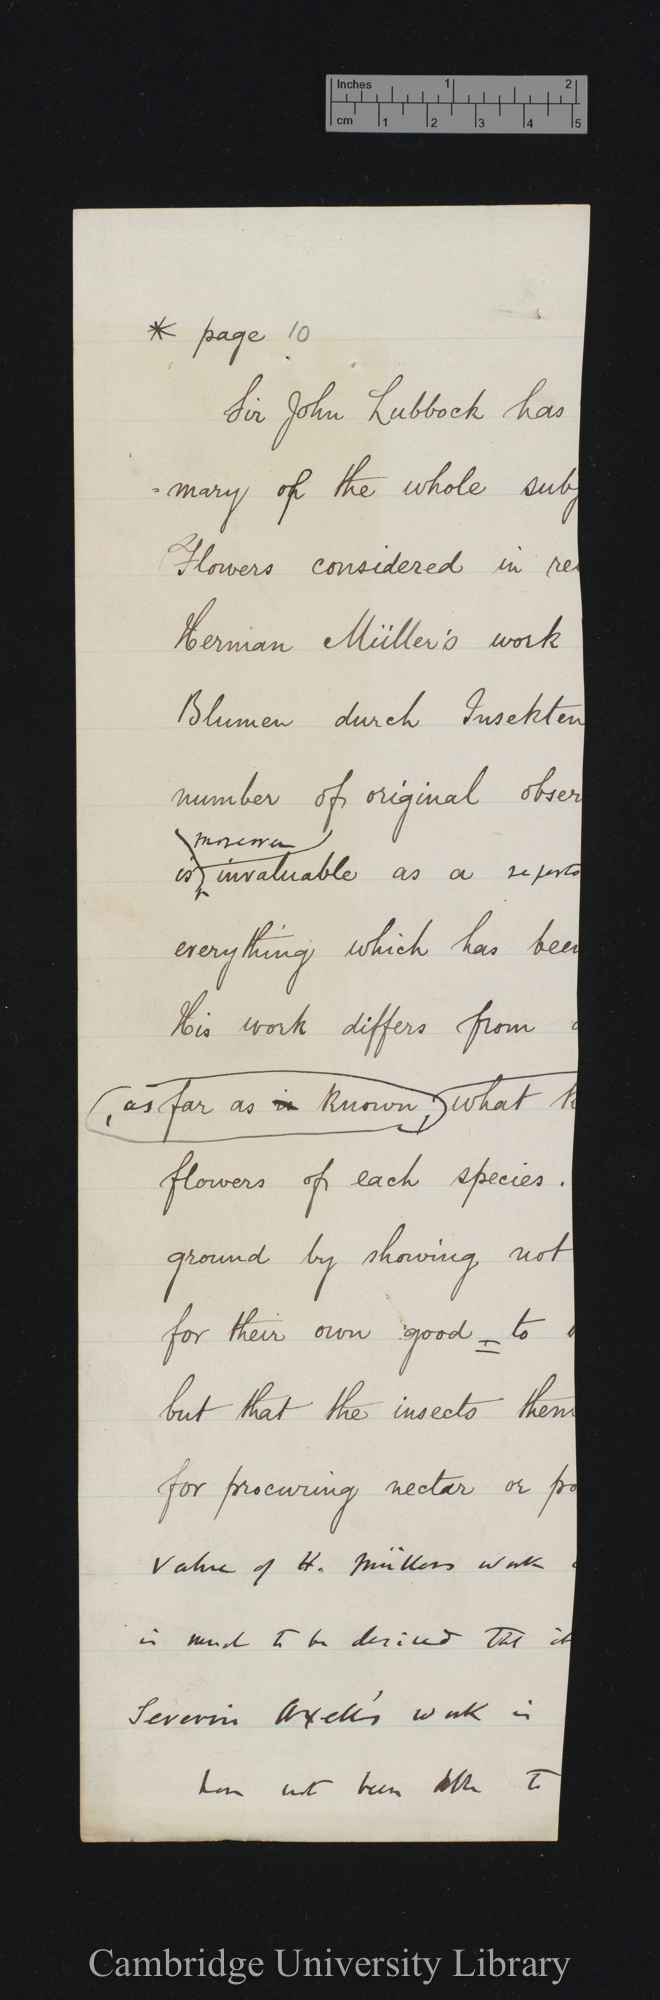 Inches 1 2
cm 1 2 3 4 5
* page 10
Sir John Lubbock has
=mary of the whole subj
Flowers considered in re
Herman Müller's work
Blumen durch Insekten
number of original obser
moreover
is invaluable as a reperto
everything which has been
His work differs from
, as far as is known, what k
flowers of each species.
ground by showing not
for their own good = to
but that the insects them
for procuring nectar or po
value of H. Müllers work
is much to be desired that it
Severin Axell's work in
have not been able to
Cambridge University Library